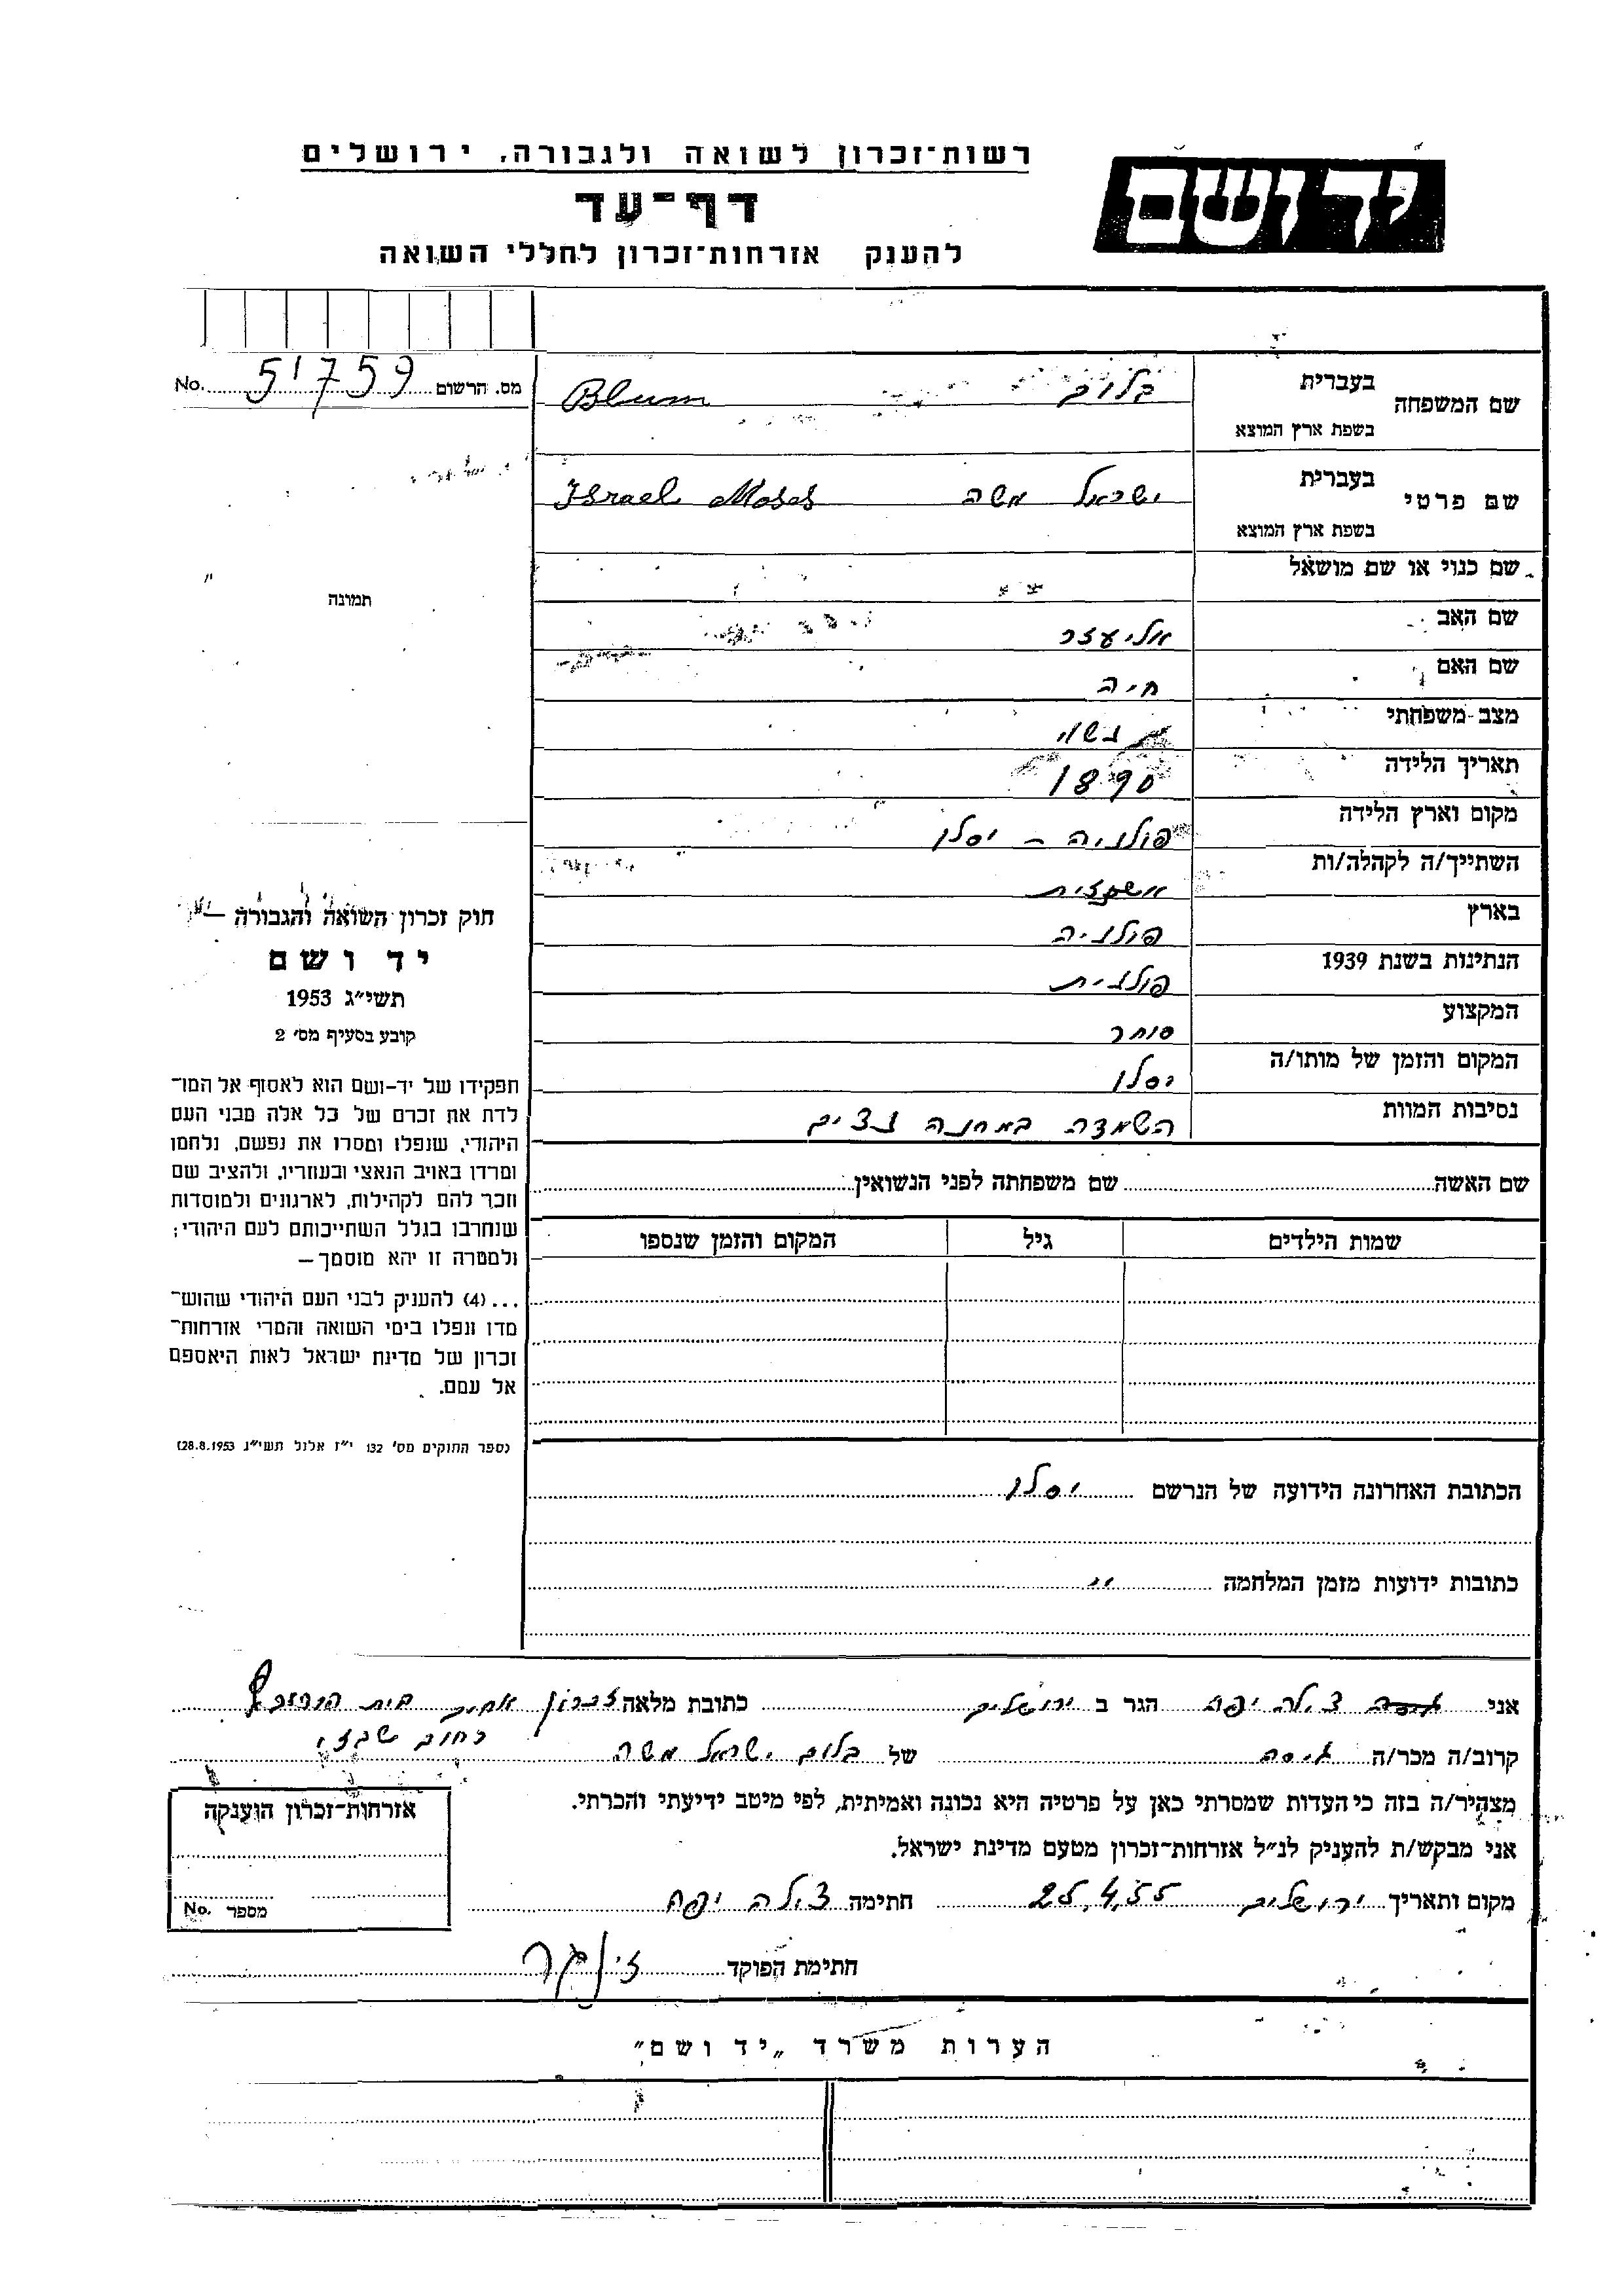 רשות־זכרון לשואה ולגבורה, ירושלים
יד ושם
דף־עד
להענק אזרחות־זכרון לחללי השואה
מס. הרשום 51759 No.
שם המשפחה
בעברית בלום Blum
בשפת ארץ המוצא
שם פרטי
בעברית ישראל משה Israel Moses
בשפת ארץ המוצא
שם כנוי או שם מושאל
שם האב אליעזר
שם האם חיה
מצב משפחתי נשוי
תאריך הלידה 1890
מקום וארץ הלידה פולניה – יסלו
השתייך/ה לקהלה/ות אשכנזית
בארץ פולניה
הנתינות בשנת 1939 פולנית
המקצוע סוחר
המקום והזמן של מותו/ה יסלו
נסיבות המוות השמדה במחנה נצים
שם האשה שם משפחתה לפני הנשואין
שמות הילדים גיל המקום והזמן שנספו
הכתובת האחרונה הידועה של הנרשם יסלו
כתובות ידועות מזמן המלחמה "
תמונה
חוק זכרון השואה והגבורה –
יד ושם
תשי״ג 1953
קובע בסעיף מס׳ 2
תפקידו של יד-ושם הוא לאסוף אל המו־
לדת את זכרם של כל אלה מבני העם
היהודי, שנפלו ומסרו את נפשם, נלחמו
ומרדו באויב הנאצי ובעוזריו, ולהציב שם
וזכר להם לקהילות, לארגונים ולמוסדות
שנחרבו בגלל השתייכותם לעם היהודי;
ולמטרה זו יהא מוסמך –
...(4) להעניק לבני העם היהודי שהוש־
מדו ונפלו בימי השואה והמרי אזרחות־
זכרון של מדינת ישראל לאות היאספם
אל עמם.
(ספר החוקים מס׳ 132 י״ז אלול תשי״ג 28.8.1953)
אני צילה יפה הגר ב ירושלים כתובת מלאה זכרון אחים בית
רחוב שבזי
קרוב/ה מכר/ה גיסה של בלום ישראל משה
מצהיר/ה בזה כי העדות שמסרתי כאן על פרטיה היא נכונה ואמיתית, לפי מיטב ידיעתי והכרתי.
אני מבקש/ת להעניק לנ״ל אזרחות־זכרון מטעם מדינת ישראל.
מקום ותאריך ירושלים 25.4.55 חתימה צילה יפה
חתימת הפוקד
אזרחות־זכרון הוענקה
מספר No.
הערות משרד „יד ושם״